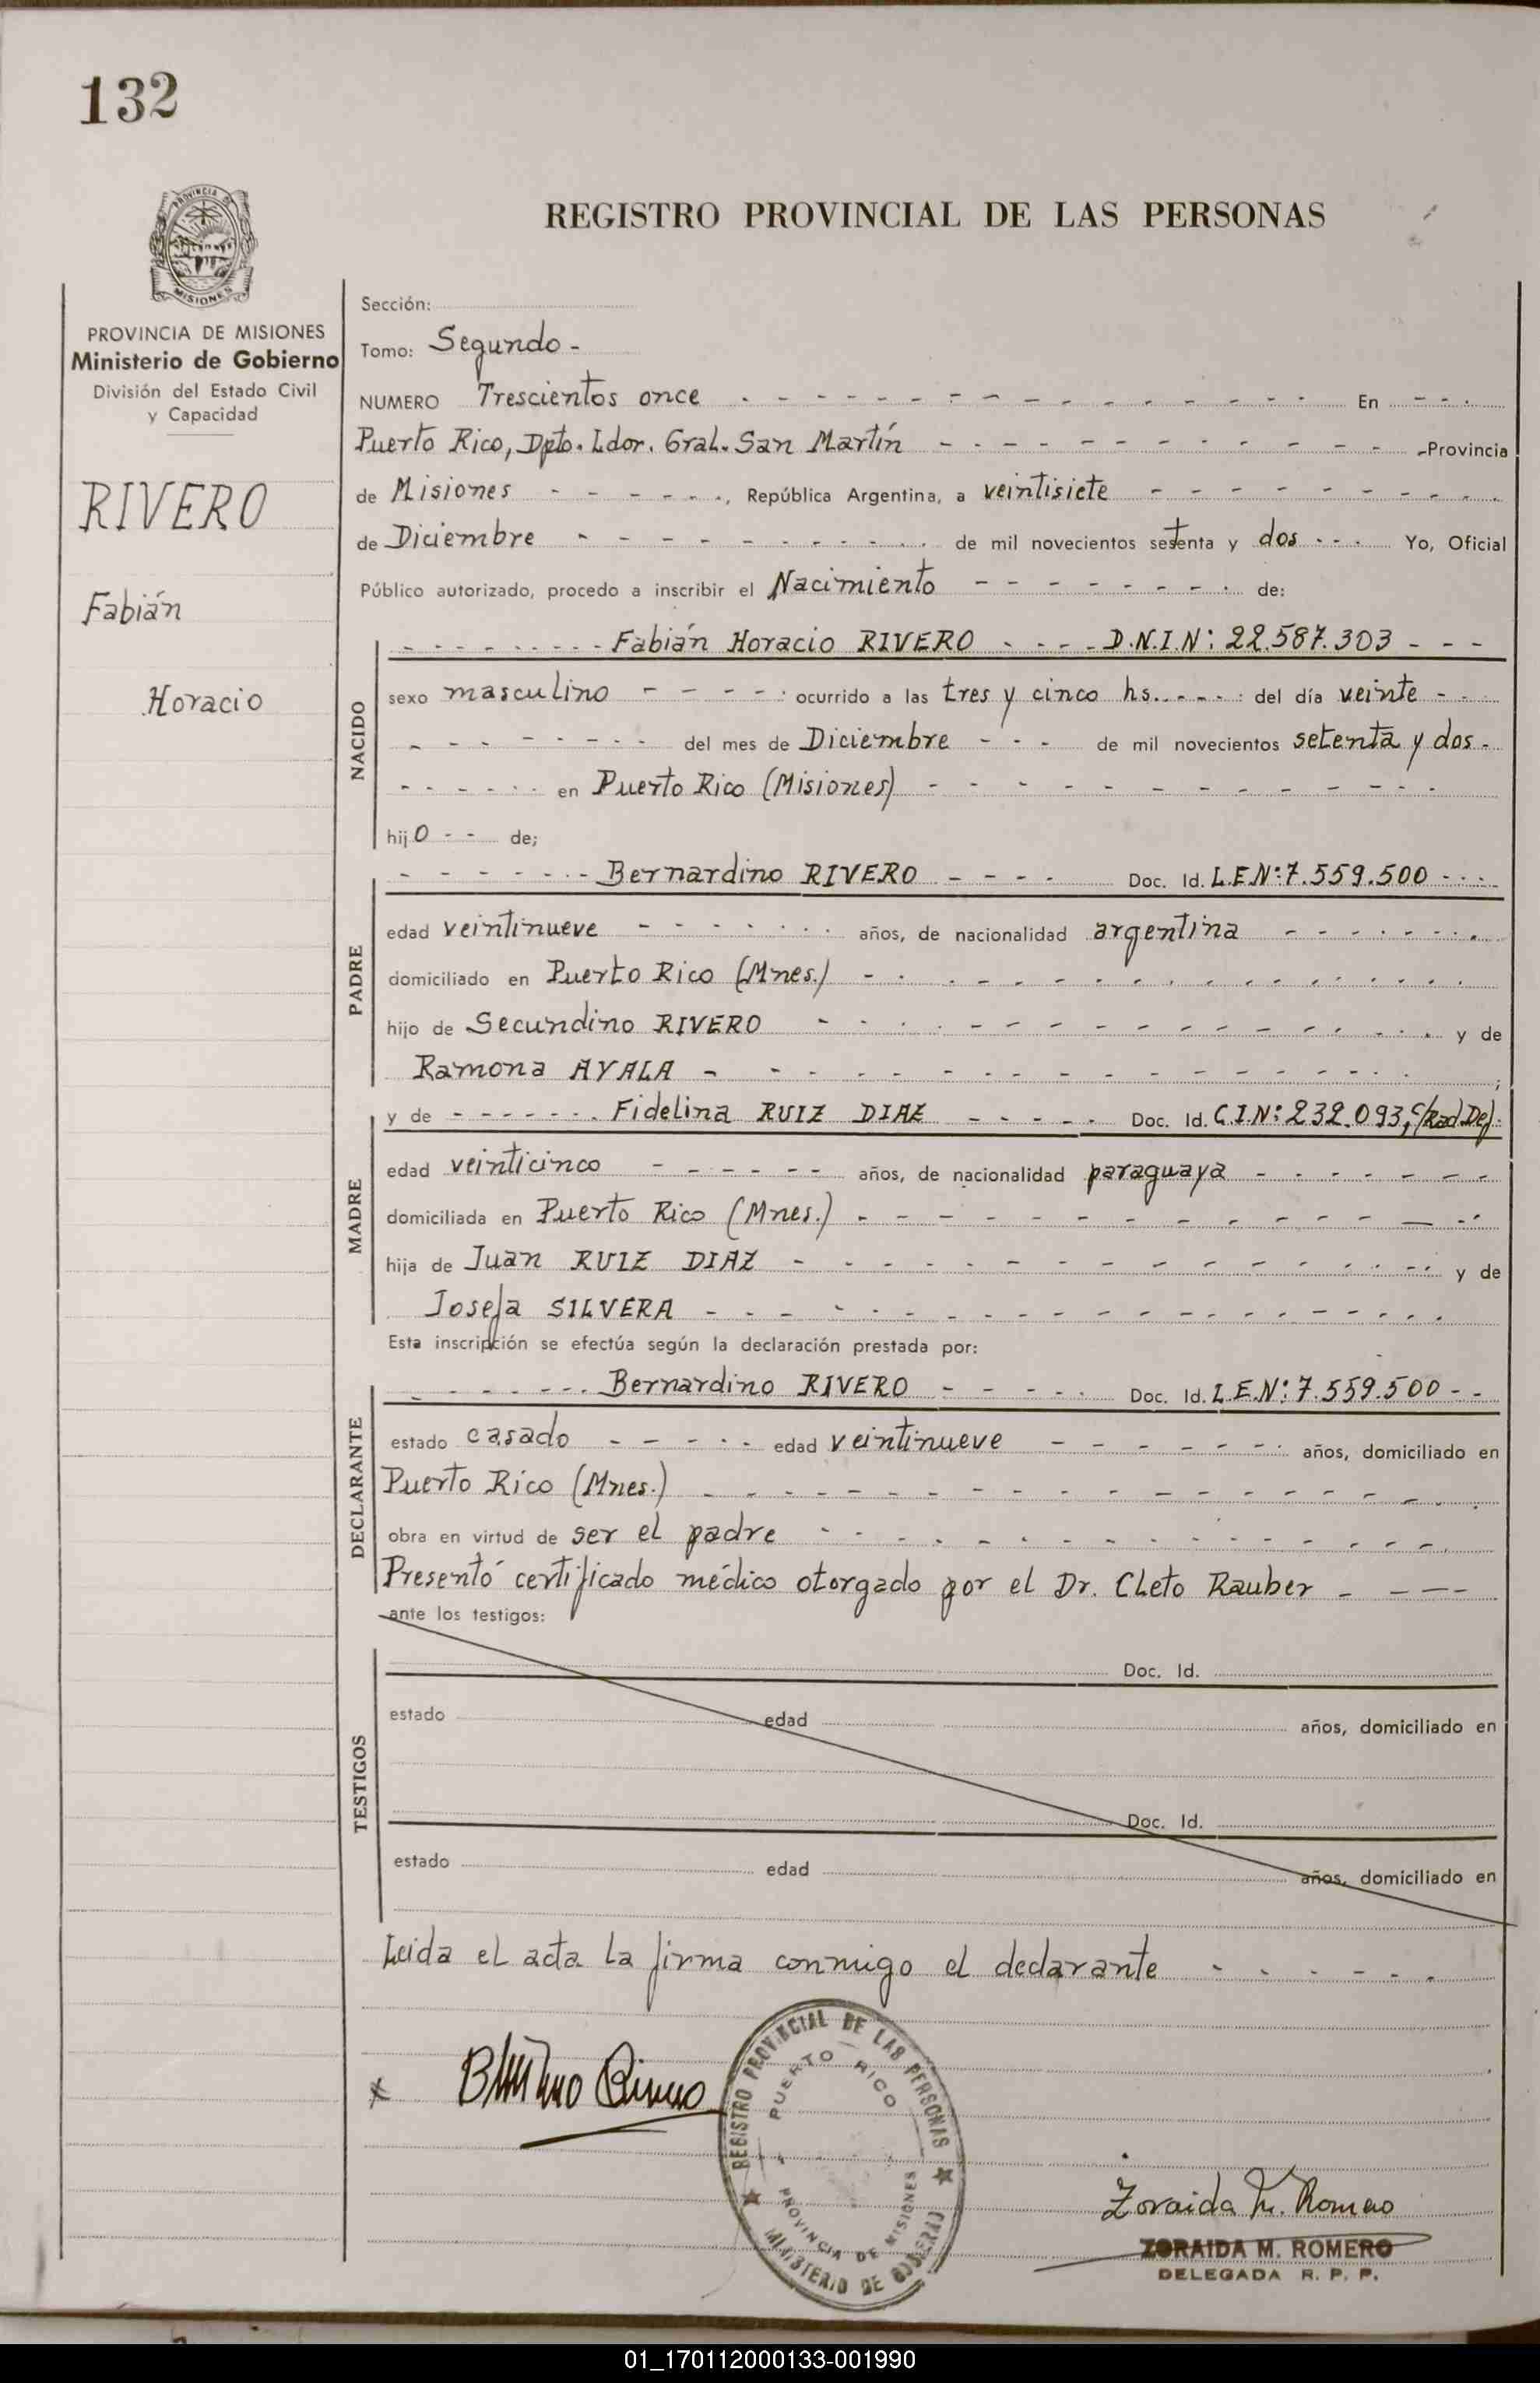 132
REGISTRO PROVINCIAL DE LAS PERSONAS
PROVINCIA DE MISIONES
PROVINCIA DE MISIONES
Ministerio de Gobierno
División del Estado Civil
y Capacidad
RIVERO
Fabián
Horacio
Sección:
Tomo: Segundo -
NUMERO Trescientos once - - - En - - -
Puerto Rico, Dpto. Ldor. Gral. San Martín - - - Provincia
de Misiones - - -, República Argentina, a veintisiete - - -
de Diciembre - - - de mil novecientos setenta y dos - - - Yo, Oficial
Público autorizado, procedo a inscribir el Nacimiento - - - de:
NACIDO
- - - Fabián Horacio RIVERO - - - D.N.I.N: 22.587.303 - - -
sexo masculino - - - : ocurrido a las tres y cinco hs. - - - : del día veinte - - -
- - - del mes de Diciembre - - - de mil novecientos setenta y dos -
- - - en Puerto Rico (Misiones) - - -
hijo - - de;
PADRE
- - - Bernardino RIVERO - - - Doc. Id. L.E.N: 7.559.500 - - -
edad veintinueve - - - años, de nacionalidad argentina - - -
domiciliado en Puerto Rico (Mnes.) - - -
hijo de Secundino RIVERO - - - y de
Ramona AYALA - - - ;
MADRE
y de - - - Fidelina RUIZ DIAZ - - - Doc. Id. C.I.N: 232.093, C/Rad.Def.
edad veinticinco - - - años, de nacionalidad paraguaya - - -
domiciliada en Puerto Rico (Mnes.) - - -
hija de Juan RUIZ DIAZ - - - y de
Josefa SILVERA - - -
Esta inscripción se efectúa según la declaración prestada por:
DECLARANTE
- - - Bernardino RIVERO - - - Doc. Id. L.E.N: 7.559.500 - -
estado casado - - - edad veintinueve - - - años, domiciliado en
Puerto Rico (Mnes.) - - -
obra en virtud de ser el padre - - -
Presentó certificado médico otorgado por el Dr. Cleto Rauber - - -
ante los testigos:
TESTIGOS
Doc. Id.
estado edad años, domiciliado en
Doc. Id.
estado edad años, domiciliado en
Leida el acta la firma conmigo el declarante - - -
x
REGISTRO PROVINCIAL DE LAS PERSONAS
PUERTO RICO
PROVINCIA DE MISIONES
MINISTERIO DE GOBIERNO
Zoraida M. Romero
ZORAIDA M. ROMERO
DELEGADA R. P. P.
01_170112000133-001990